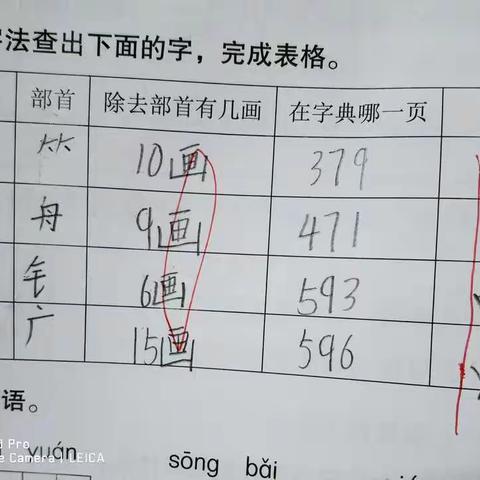 字法查出下面的字，完成表格。
部首 除去部首有几画 在字典哪一页
10画 379
舟 9画 471
钅 6画 593
广 15画 596
语。
yuán sōng bǎi
Pro
Camera | LEICA